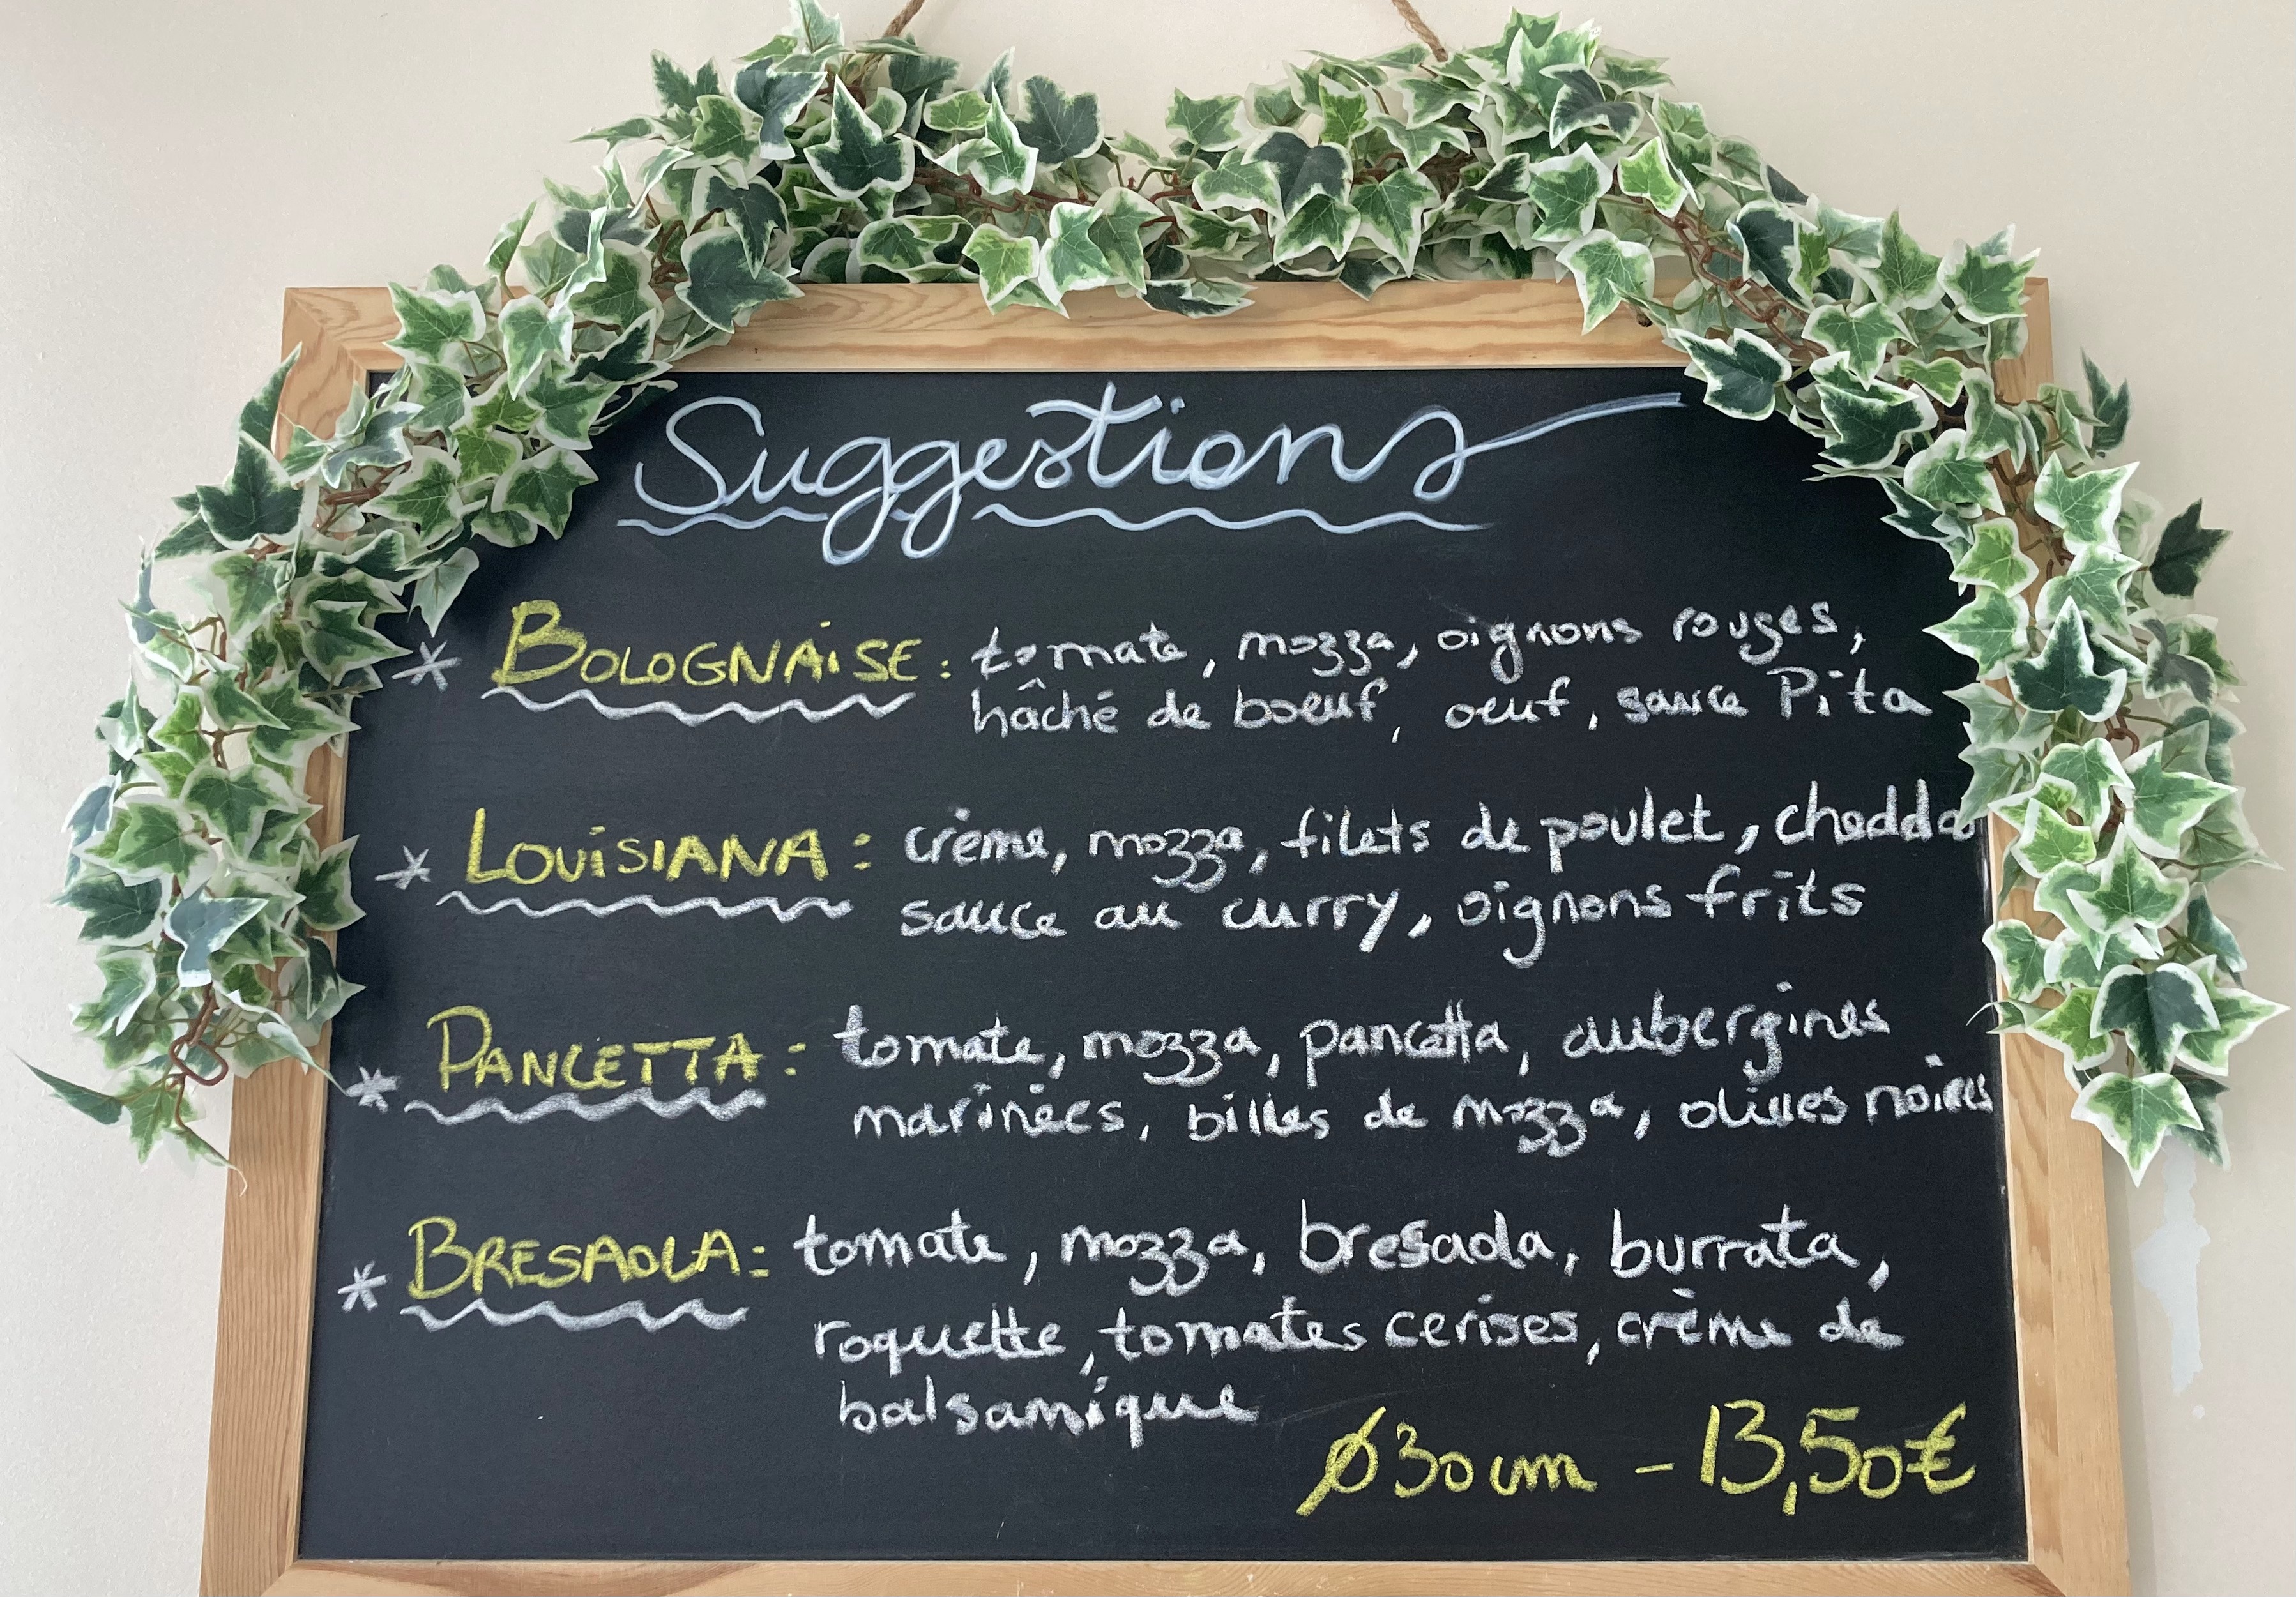 Suggestions
* BOLOGNAISE : tomate, mozza, oignons rouges,
hâché de boeuf, oeuf, sauce Pita
* LOUISIANA : crème, mozza, filets de poulet, chedda
sauce au curry, oignons frits
* PANCETTA : tomate, mozza, pancetta, aubergines
marinées, billes de mozza, olives noires
* BRESAOLA : tomate, mozza, bresaola, burrata,
roquette, tomates cerises, crème de
balsamique
Ø30cm - 13,50€